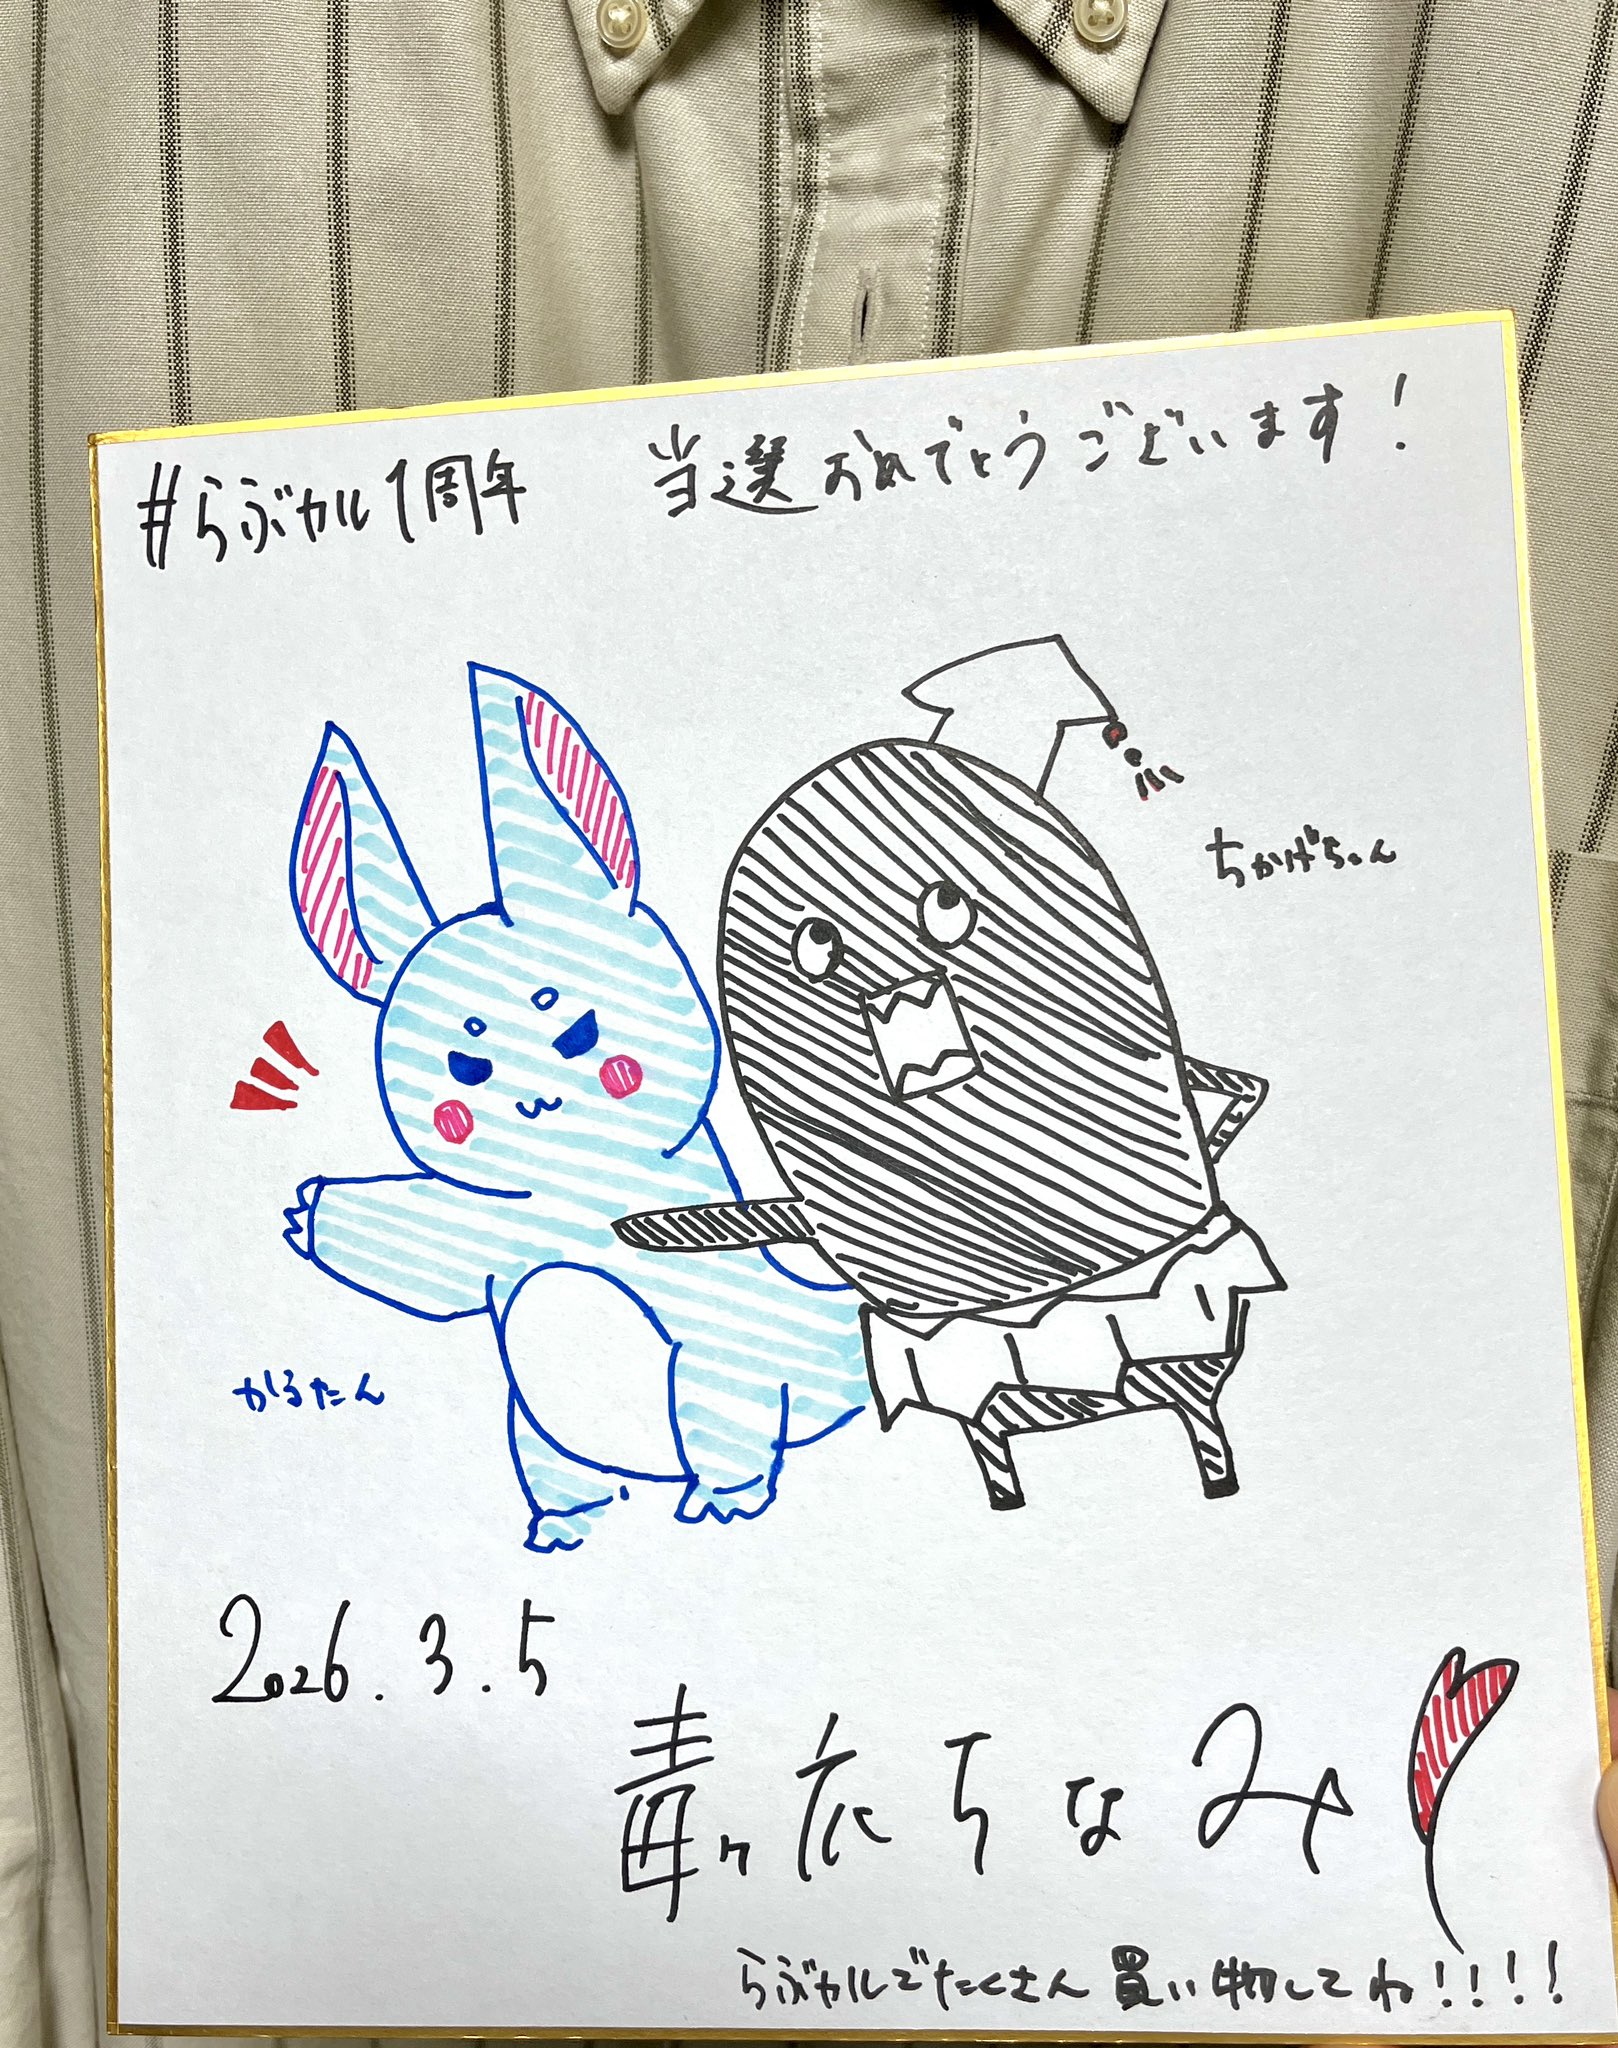 #らぶカル1周年
当選おめでとうございます!
ちかげちゃん
かるたん
2026.3.5
毒ヶ衣ちなみ
らぶカルでたくさん買い物してね!!!!